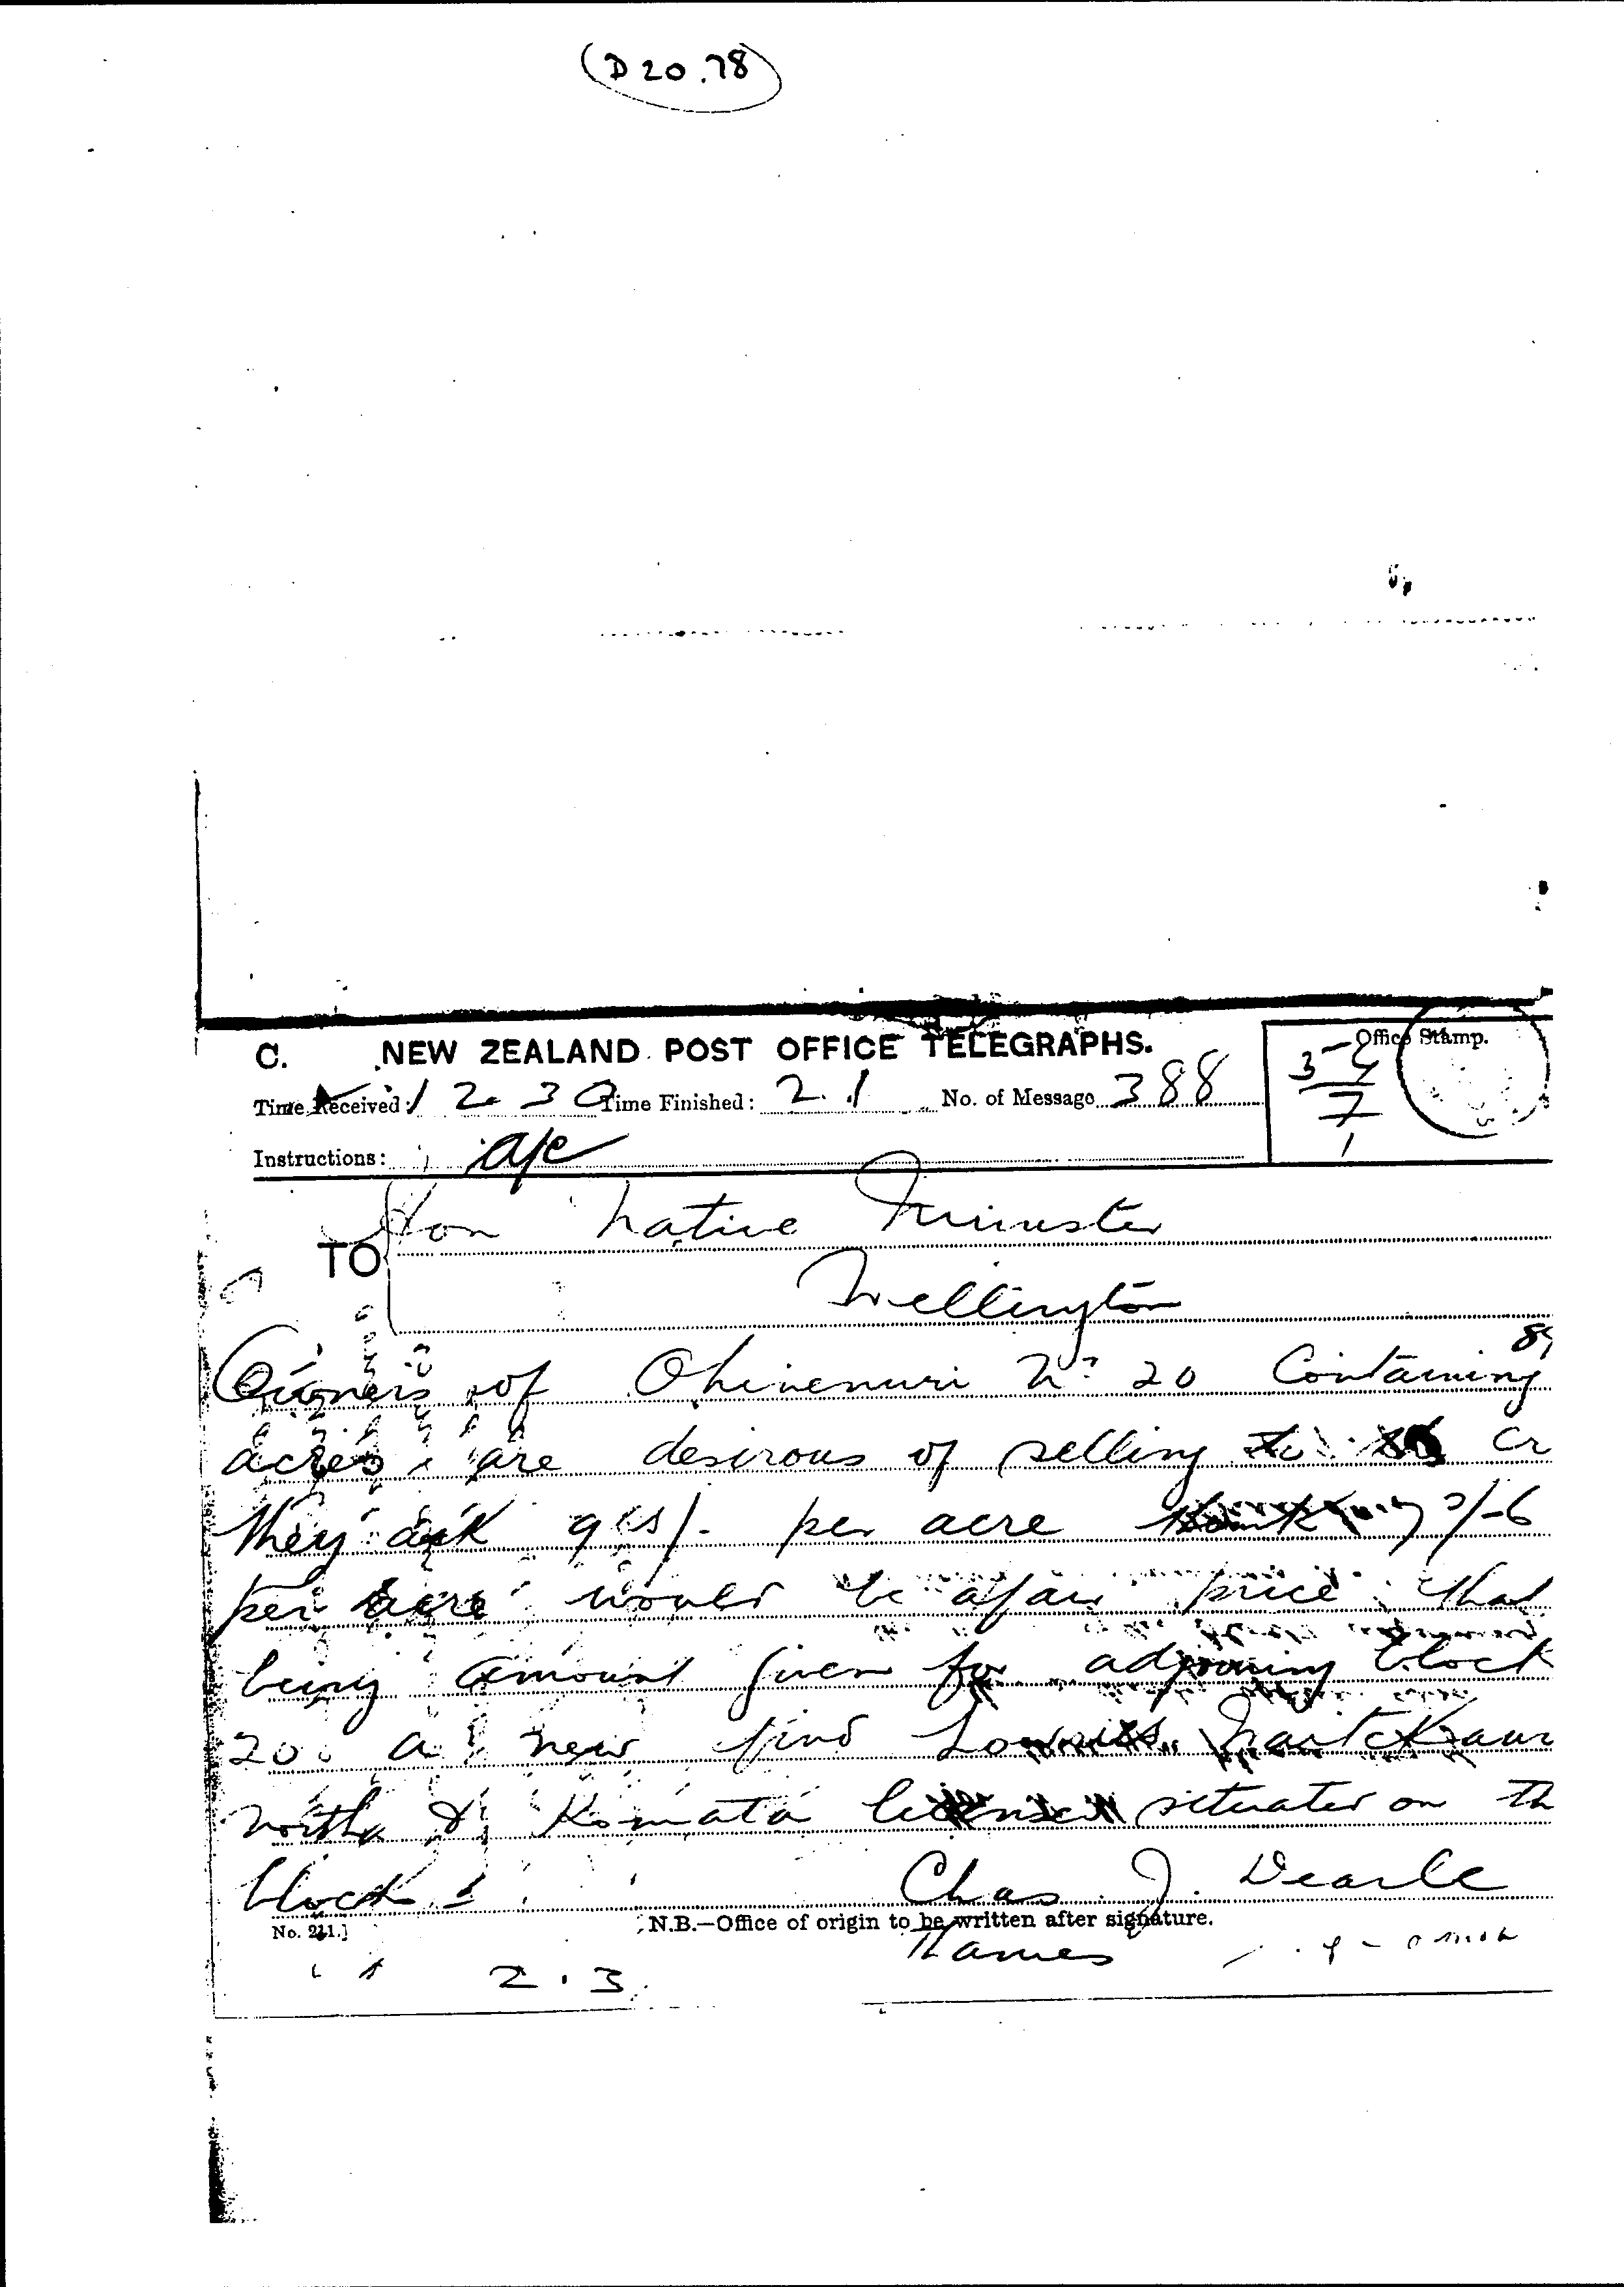 (D 20.78)
C. NEW ZEALAND POST OFFICE TELEGRAPHS.
Office Stamp.
Time Received: 12.30 Time Finished: 2.1 No. of Message 388
Instructions:
TO Hon Native Minister
Wellington
Owners of Ohinemuri No 20 Containing
acres are desirous of selling to
they ask per acre /-6
per acre would be a fair price that
being amount given for adjoining block
20 a new find
north & Komata situated on th
block Chas J. Dearle
No. 211.] N.B.—Office of origin to be written after signature.
Thames
2.3